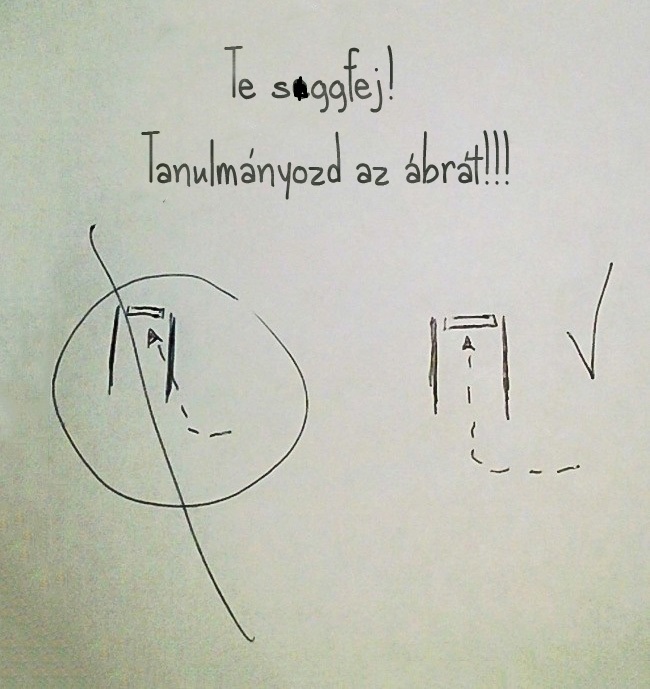 Te seggfej!
Tanulmányozd az ábrát!!!